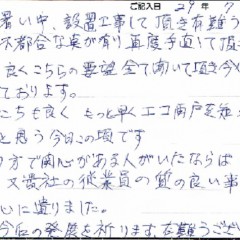 ご記入日 29年 7
暑い中、設置工事して頂き有難う
不都合な点が有り直度手直して頂き
良くこちらの要望全て向いて頂き今
ております。
こちも良く もっと早くエコ雨戸を知
と思う今日この頃です
り方で関心がある人がいたならば
又貴社の従業員の質の良い事
心に遺りました。
今后の発展を祈ります有難うござ